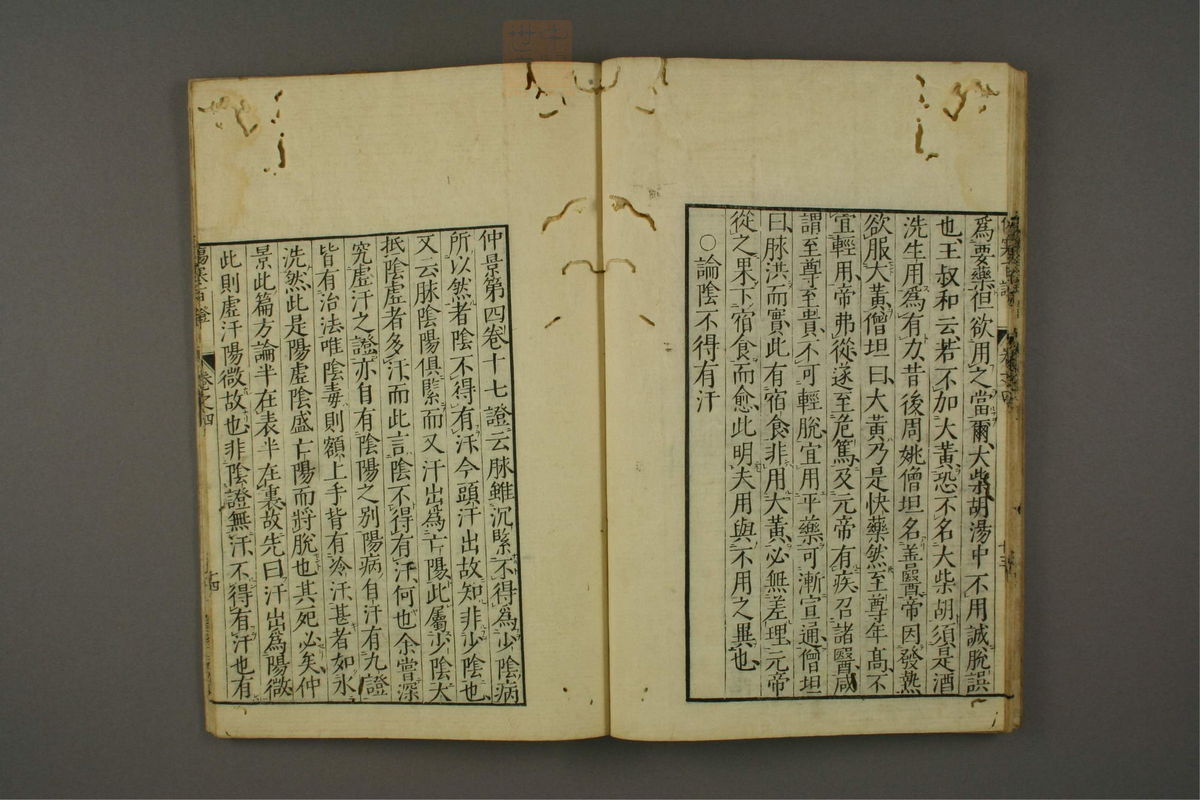 爲要藥但欲用之當爾大柴胡湯中不用誠脫誤
也王叔和云若不加大黃恐不名大柴胡須是酒
洗生用爲有力昔後周姚僧坦名善醫帝因發熱
欲服大黃僧坦曰大黃乃是快藥然至尊年髙不
宜輕用帝弗從遂至危篤及元帝有疾召諸醫咸
謂至尊至貴不可輕脫宜用平藥可漸宣通僧坦
曰脉洪而實此有宿食非用大黃必無差理元帝
從之果下宿食而愈此明夫用與不用之異也
○論陰不得有汗
卷之四
十三
仲景第四卷十七證云脉雖沉緊不得爲少陰病
所以然者陰不得有汗今頭汗出故知非少陰也
又云脉陰陽俱緊而又汗出爲亡陽此屬少陰大
抵陰虛者多汗而此言陰不得有汗何也余嘗深
究虛汗之證亦自有陰陽之別陽病自汗有九證
皆有治法唯陰毒則額上手背有冷汗甚者如水
洗然此是陽虛陰盛亡陽而將脫也其死必矣仲
景此篇方論半在表半在裏故先曰汗出爲陽微
此則虛汗陽微故也非陰證無汗不得有汗也有
傷寒百證
卷之四
十四